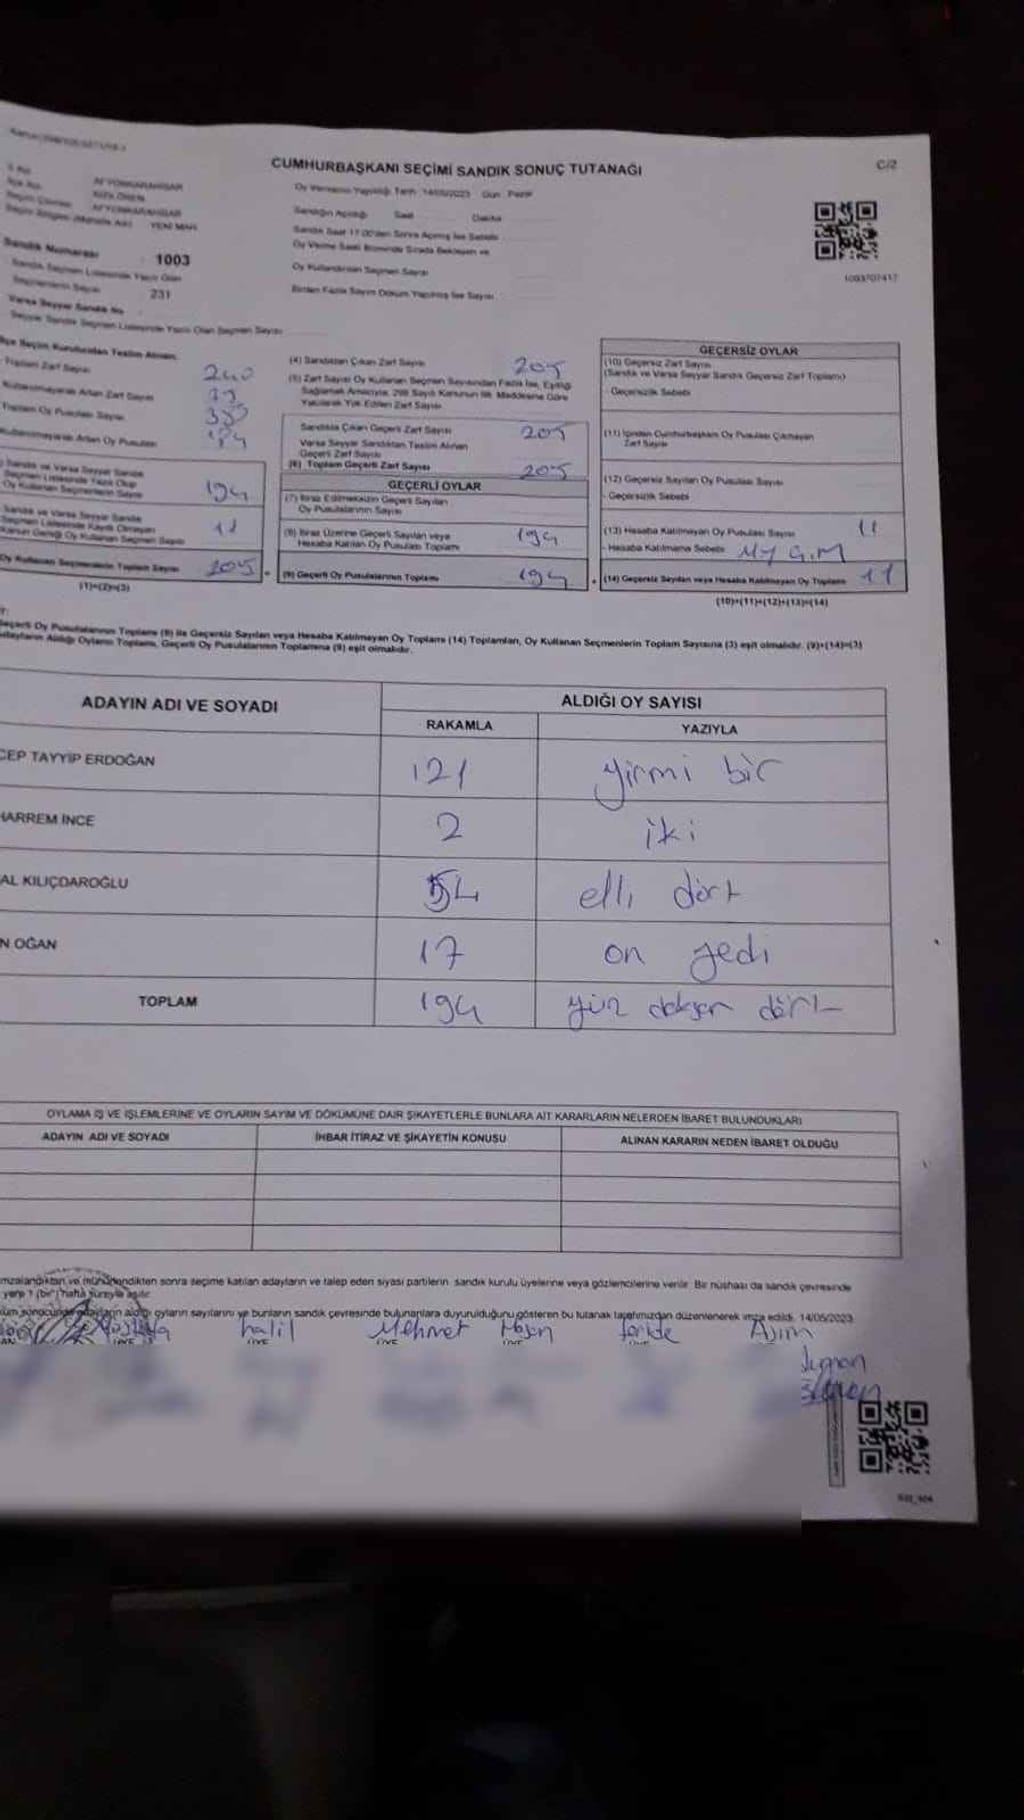 CUMHURBAŞKANI SEÇİMİ SANDIK SONUÇ TUTANAĞI
C/2
Oy Vermenin Yapıldığı Tarih 14/05/2023 Gün Pazar
AFYONKARAHİSAR
KIZILÖREN
AFYONKARAHİSAR
YENİ MAH
Sandığın Açıldığı Saat Dakika
Sandık Saat 17.00'den Sonra Açılmış İse Sebebi
Oy Verme Saati Bitiminde Sırada Bekleyen ve
Oy Kullandırılan Seçmen Sayısı
Birden Fazla Sayım Döküm Yapılmış İse Sayısı
1003707417
Sandık Numarası 1003
Sandık Seçmen Listesinde Yazılı Olan
Seçmenlerin Sayısı 231
Varsa Seyyar Sandık No
Seyyar Sandık Seçmen Listesinde Yazılı Olan Seçmen Sayısı
İlçe Seçim Kurulundan Teslim Alınan
Toplam Zarf Sayısı 240
Kullanılmayarak Artan Zarf Sayısı
Toplam Oy Pusulası Sayısı
Kullanılmayarak Artan Oy Pusulası
Sandık ve Varsa Seyyar Sandık
Seçmen Listesinde Yazılı Olup
Oy Kullanan Seçmenlerin Sayısı 194
Sandık ve Varsa Seyyar Sandık
Seçmen Listesinde Kayıtlı Olmayan
Kanun Gereği Oy Kullanan Seçmen Sayısı 11
Oy Kullanan Seçmenlerin Toplam Sayısı 205
(1)+(2)=(3)
(4) Sandıktan Çıkan Zarf Sayısı 205
(5) Zarf Sayısı Oy Kullanan Seçmen Sayısından Fazla İse, Eşitliği
Sağlamak Amacıyla, 298 Sayılı Kanunun 98. Maddesine Göre
Yakılarak Yok Edilen Zarf Sayısı
Sandıkta Çıkan Geçerli Zarf Sayısı 205
Varsa Seyyar Sandıktan Teslim Alınan
Geçerli Zarf Sayısı
(6) Toplam Geçerli Zarf Sayısı 205
GEÇERLİ OYLAR
(7) İtiraz Edilmeksizin Geçerli Sayılan
Oy Pusulalarının Sayısı
(8) İtiraz Üzerine Geçerli Sayılan veya
Hesaba Katılan Oy Pusulası Toplamı 194
(9) Geçerli Oy Pusulalarının Toplamı 194
GEÇERSİZ OYLAR
(10) Geçersiz Zarf Sayısı
(Sandık ve Varsa Seyyar Sandık Geçersiz Zarf Toplamı)
- Geçersizlik Sebebi
(11) İçinden Cumhurbaşkanı Oy Pusulası Çıkmayan
Zarf Sayısı
(12) Geçersiz Sayılan Oy Pusulası Sayısı
- Geçersizlik Sebebi
(13) Hesaba Katılmayan Oy Pusulası Sayısı 11
- Hesaba Katılmama Sebebi
(14) Geçersiz Sayılan veya Hesaba Katılmayan Oy Toplamı 11
(10)+(11)+(12)+(13)=(14)
Geçerli Oy Pusulalarının Toplamı (9) ile Geçersiz Sayılan veya Hesaba Katılmayan Oy Toplamı (14) Toplamları, Oy Kullanan Seçmenlerin Toplam Sayısına (3) eşit olmalıdır. (9)+(14)=(3)
Adayların Aldığı Oyların Toplamı, Geçerli Oy Pusulalarının Toplamına (9) eşit olmalıdır.
ADAYIN ADI VE SOYADI ALDIĞI OY SAYISI
RAKAMLA YAZIYLA
CEP TAYYİP ERDOĞAN 121 yirmi bir
HARREM İNCE 2 iki
AL KILIÇDAROĞLU 54 elli dört
N OĞAN 17 on yedi
TOPLAM 194 yüz doksan dört
OYLAMA İŞ VE İŞLEMLERİNE VE OYLARIN SAYIM VE DÖKÜMÜNE DAİR ŞİKAYETLERLE BUNLARA AİT KARARLARIN NELERDEN İBARET BULUNDUKLARI
ADAYIN ADI VE SOYADI İHBAR İTİRAZ VE ŞİKAYETİN KONUSU ALINAN KARARIN NEDEN İBARET OLDUĞU
imzalandıktan ve mühürlendikten sonra seçime katılan adayların ve talep eden siyasi partilerin sandık kurulu üyelerine veya gözlemcilerine verilir. Bir nüshası da sandık çevresinde
yere 1 (bir) hafta süreyle asılır.
adayların aldığı oyların sayılarını ve bunların sandık çevresinde bulunanlara duyurulduğunu gösteren bu tutanak tarafımızdan düzenlenerek imza edildi. 14/05/2023
halil Mehmet
ÜYE ÜYE ÜYE